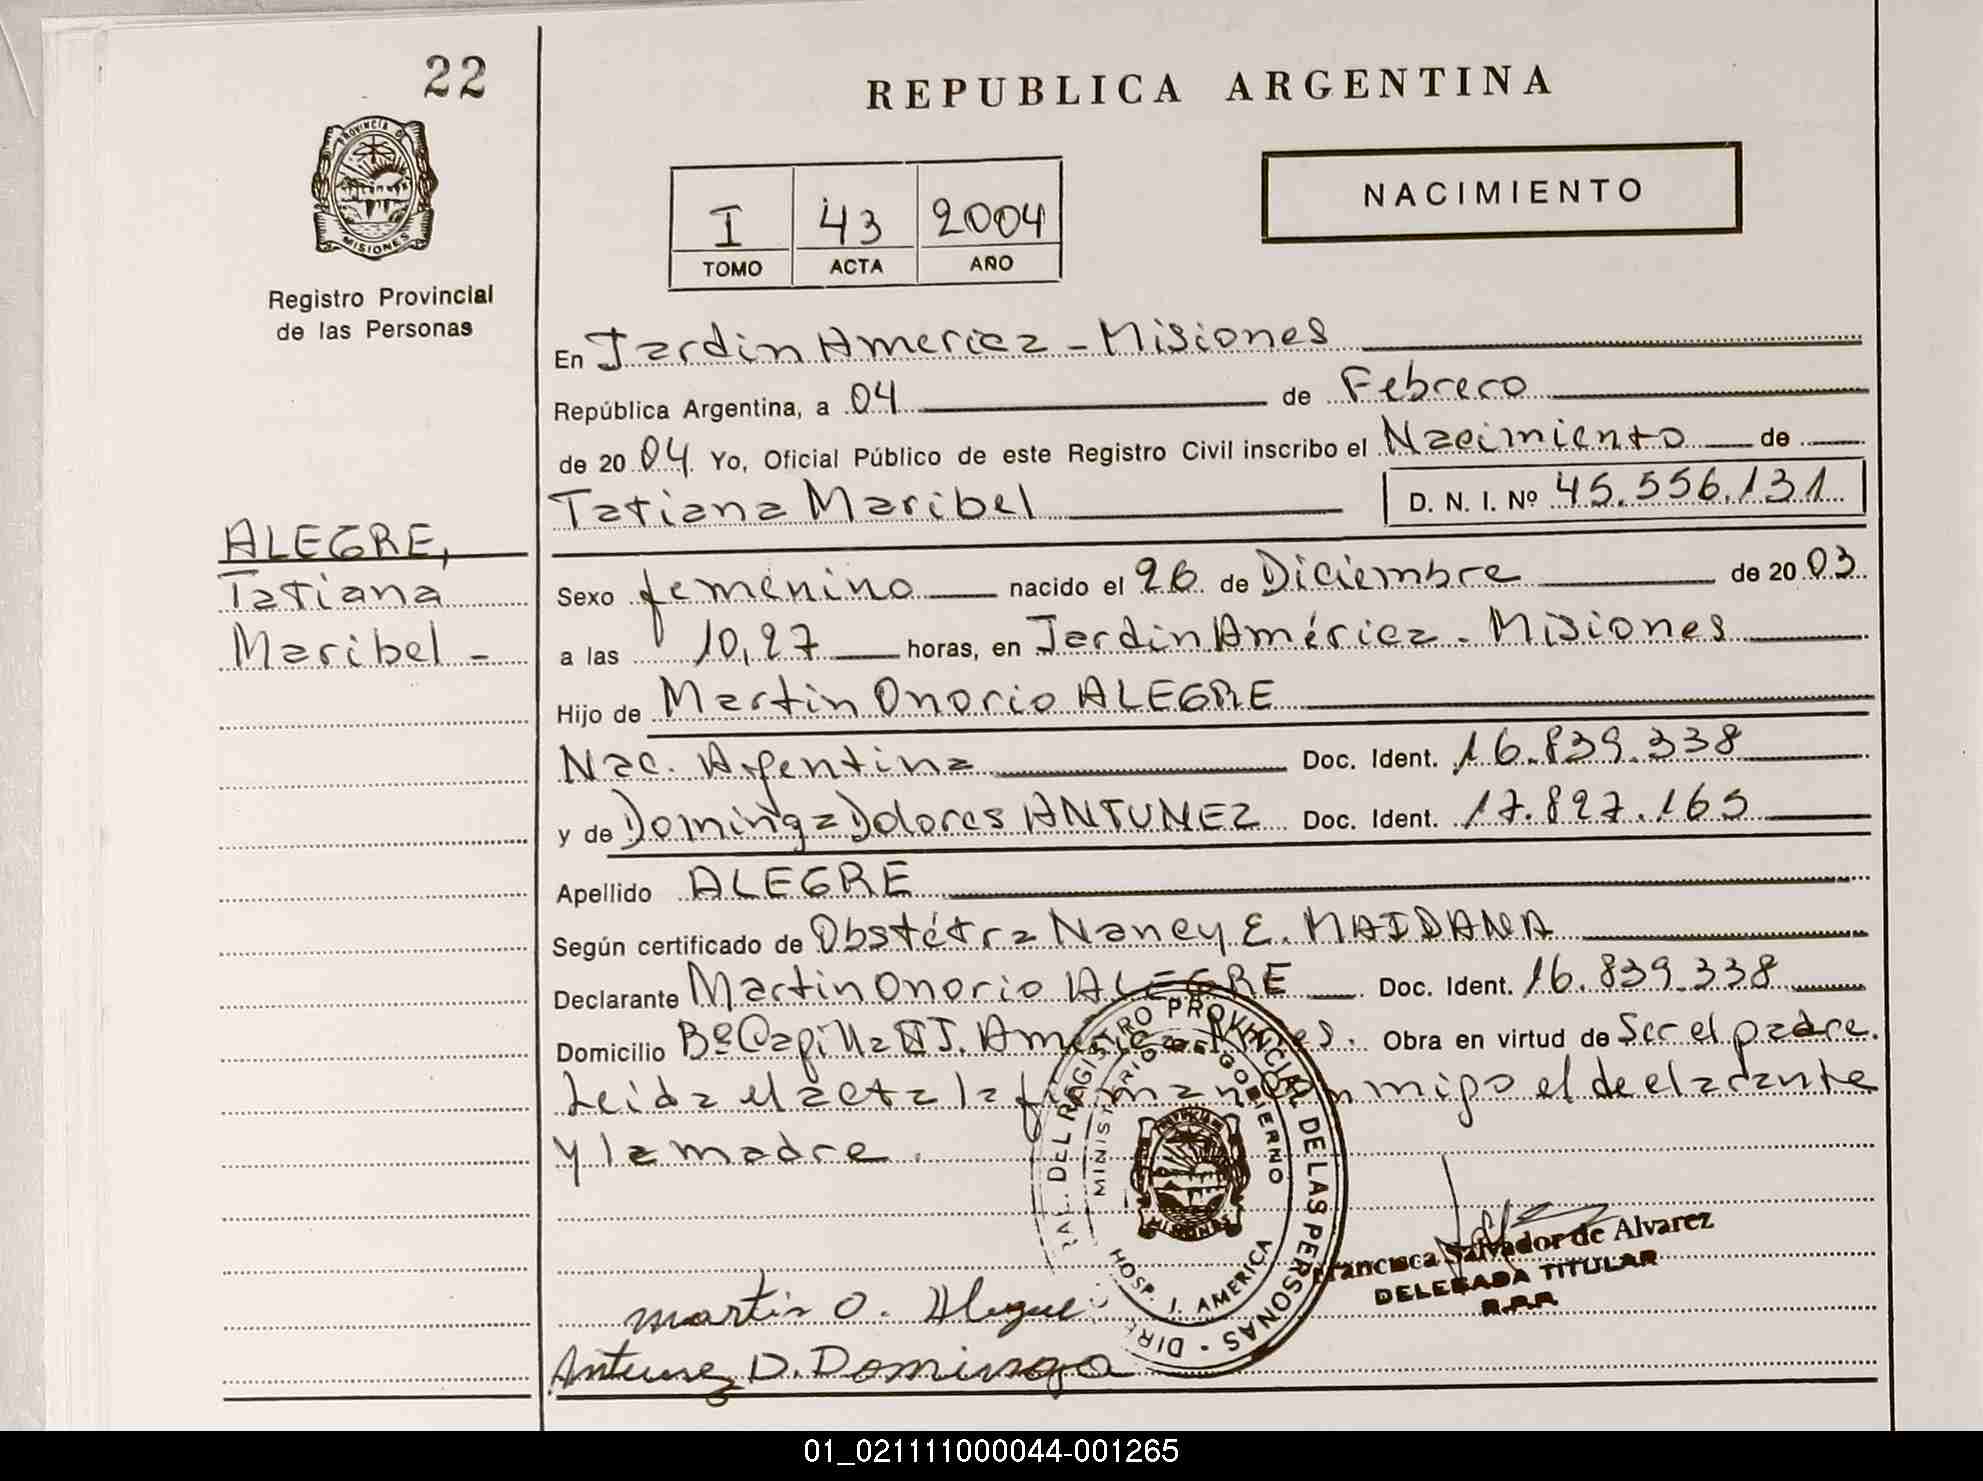 22
REPUBLICA ARGENTINA
PROVINCIA D
MISIONES
Registro Provincial
de las Personas
NACIMIENTO
I 43 2004
TOMO ACTA AÑO
En Jardin America - Misiones
República Argentina, a 04 de Febrero
de 2004 Yo, Oficial Público de este Registro Civil inscribo el Nacimiento de
Tatiana Maribel D. N. I. Nº 45.556.131
ALEGRE,
Tatiana
Maribel -
Sexo femenino nacido el 26 de Diciembre de 2003
a las 10,27 horas, en Jardin América - Misiones
Hijo de Martin Onorio ALEGRE
Nac. Argentina Doc. Ident. 16.839.338
y de Dominga Dolores ANTUNEZ Doc. Ident. 17.827.165
Apellido ALEGRE
Según certificado de Obstétra Nancy E. MAIDANA
Declarante Martin Onorio ALEGRE Doc. Ident. 16.839.338
Domicilio Bº Capilla J. America Obra en virtud de Ser el padre.
Leida el acta la firman con migo el declarante
y la madre.
DEL REGISTRO PROVINCIAL DE LAS PERSONAS - DIRE
MINISTERIO DE GOBIERNO
MISIONES
HOSP. J. AMERICA
Francisca Salvador de Alvarez
DELEGADA TITULAR
R.P.P.
martin O. Alegre
Antunez D. Dominga
01_021111000044-001265